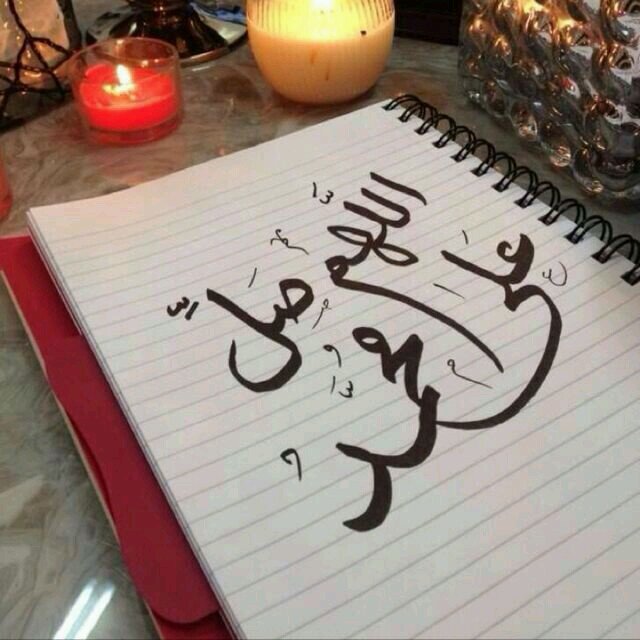 اللهم صلِّ
على محمد